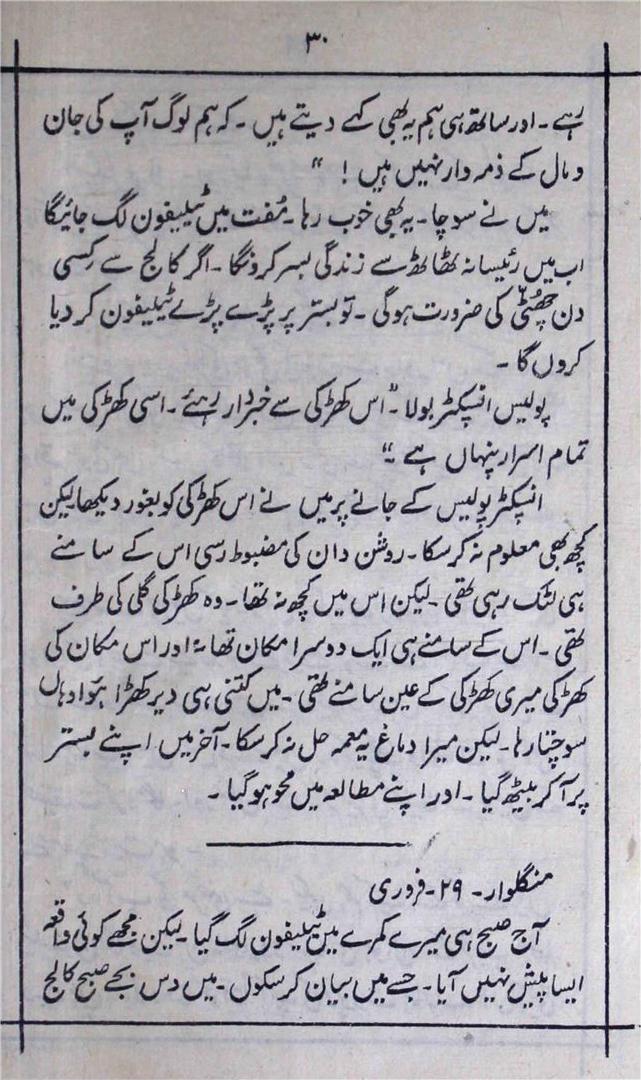 ۳۰
رہے۔ اور ساتھ ہی ہم یہ بھی کہے دیتے ہیں۔ کہ ہم لوگ آپ کی جان
و مال کے ذمہ دار نہیں ہیں! "
میں نے سوچا۔ یہ بھی خوب رہا۔ مُفت میں ٹیلیفون لگ جائیگا
اب میں رئیسانہ ٹھاٹھ سے زندگی بسر کرونگا۔ اگر کالج سے کِسی
دن چھُٹی کی ضرورت ہوگی۔ تو بستر پر پڑے پڑے ٹیلیفون کر دیا
کروں گا۔
پولیس انسپکٹر بولا۔ "اس کھڑکی سے خبردار رہئے۔ اسی کھڑکی میں
تمام اسرار پنہاں ہے۔"
انسپکٹر پولیس کے جانے پر میں نے اس کھڑکی کو بغور دیکھا۔ لیکن
کچھ بھی معلوم نہ کر سکا۔ روشن دان کی مضبوط رسی اس کے سامنے
ہی لٹک رہی تھی۔ لیکن اس میں کچھ نہ تھا۔ وہ کھڑکی گلی کی طرف
تھی۔ اس کے سامنے ہی ایک دوسرا مکان تھا۔ اور اس مکان کی
کھڑکی میری کھڑکی کے عین سامنے تھی۔ میں کتنی ہی دیر کھڑا ہوا وہاں
سوچتا رہا۔ لیکن میرا دماغ یہ معمہ حل نہ کر سکا۔ آخر میں اپنے بستر
پر آ کر بیٹھ گیا۔ اور اپنے مطالعہ میں محو ہو گیا۔
منگلوار۔ ۲۹۔ فروری
آج صبح ہی میرے کمرے میں ٹیلیفون لگ گیا۔ لیکن مجھے کوئی واقعہ
ایسا پیش نہیں آیا۔ جسے میں بیان کر سکوں۔ میں دس بجے صبح کالج